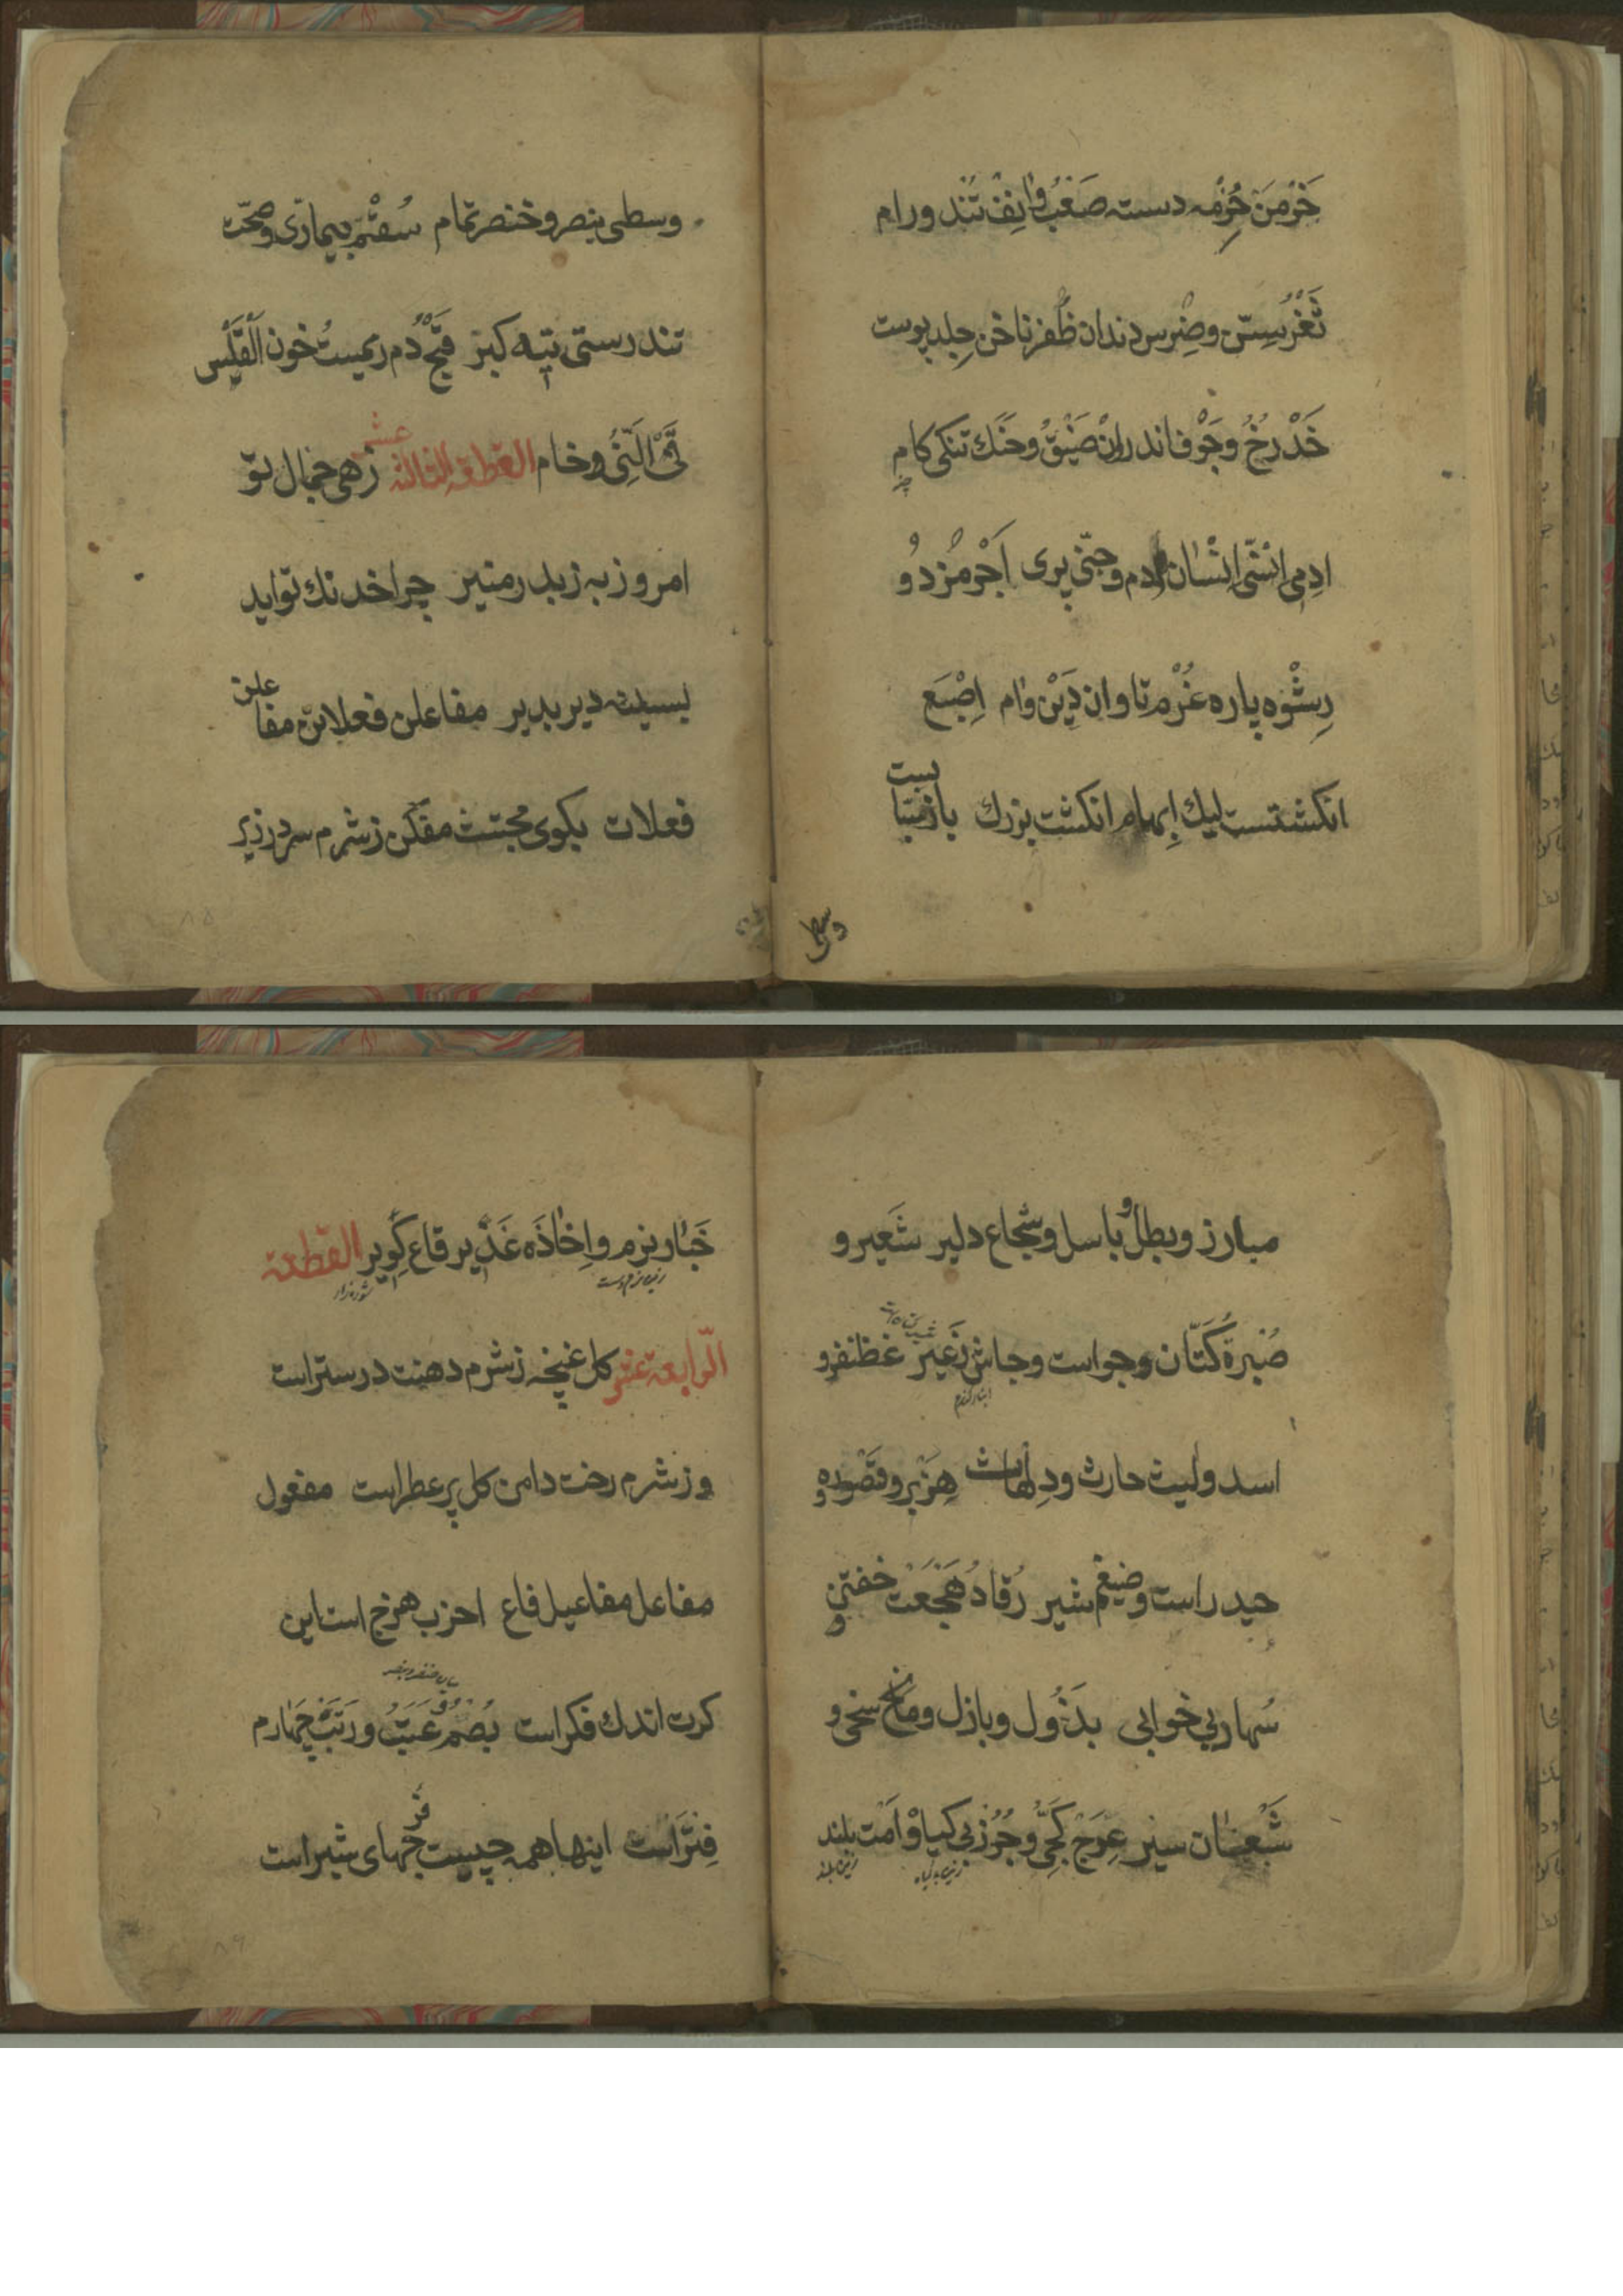 خرمن حزمه دسته صعب وانف تند ورام
ثغر سن وضرس دندان ظفر ناخن جلد پوست
خد رخ وجوف اندران ضیق وحنك تنکی کام
ادمی انسی انسان ادم وجنی پری اجر مزد و
رشوه پاره غرم تاوان دین وام اصبع
انکشتست لیك ابهام انکشت بزرك بازسبابست
وسطی
وسطی بنصر وخنصر تمام سقم بیماری وصحت
تندرستی تیه کبر قیح دم ریمست خون القلس
قی النی وخام القطعه الثالثه عشر زهی جمال تو
امروز به زبدر منیر چرا خدنك تو اید
بسینه دیر بدیر مفاعلن فعلاتن مفاعلن
فعلات بکوی مجتث مفکن زشرم سر درزیر
مبارز وبطل و باسل وشجاع دلیر شعیر و
صبرة کتان وجو است وجاش زغیر غظنفر و
اسد ولیث حارث ودلهاث هزبر وقصوره و
حیدر است وضیغم شیر رقاد هجعت خفتن و
سهار بی خوابی بذول وباذل ومانح سخی و
شبعان سیر عرج کجی وجرز بی کیا و امت بلند
خبار نرم واخاذه غدیر قاع کویر القطعة
الرابعة عشر کل غنچه زشرم دهنت در ستر است
وزشرم رخت دامن کل پر عطر است مفعول
مفاعل مفاعیل فاع احزب هزج است این
کرت اندك فکر است بصم عتب ورتب چهارم
فتر است اینها همه چیست فرجهای شبر است